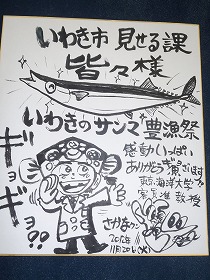 いわき市 見せる課
皆々様
いわきのサンマ豊漁祭
感動いっぱい
ありがとうギョざいます
東京海洋大学
客員准教授
ギョギョ!!
さかなクン
2012年
11月20日(火)